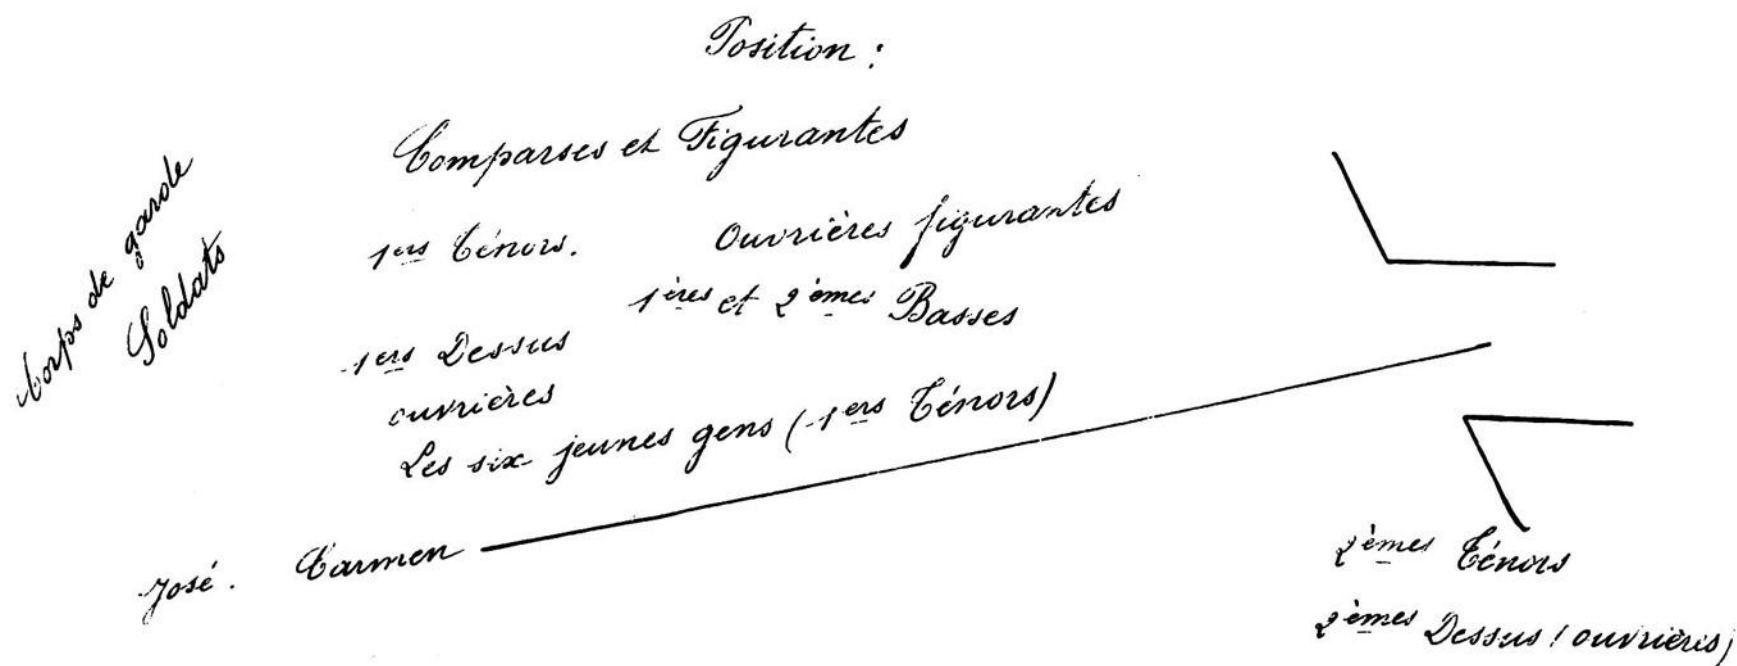 Position :
Comparses et Figurantes
Corps de garde
Soldats
1ers Ténors.
Ouvrières figurantes
1ères et 2èmes Basses
1ers Dessus
ouvrières
Les six jeunes gens (1ers Ténors)
José. Carmen
2èmes Ténors
2èmes Dessus (ouvrières)